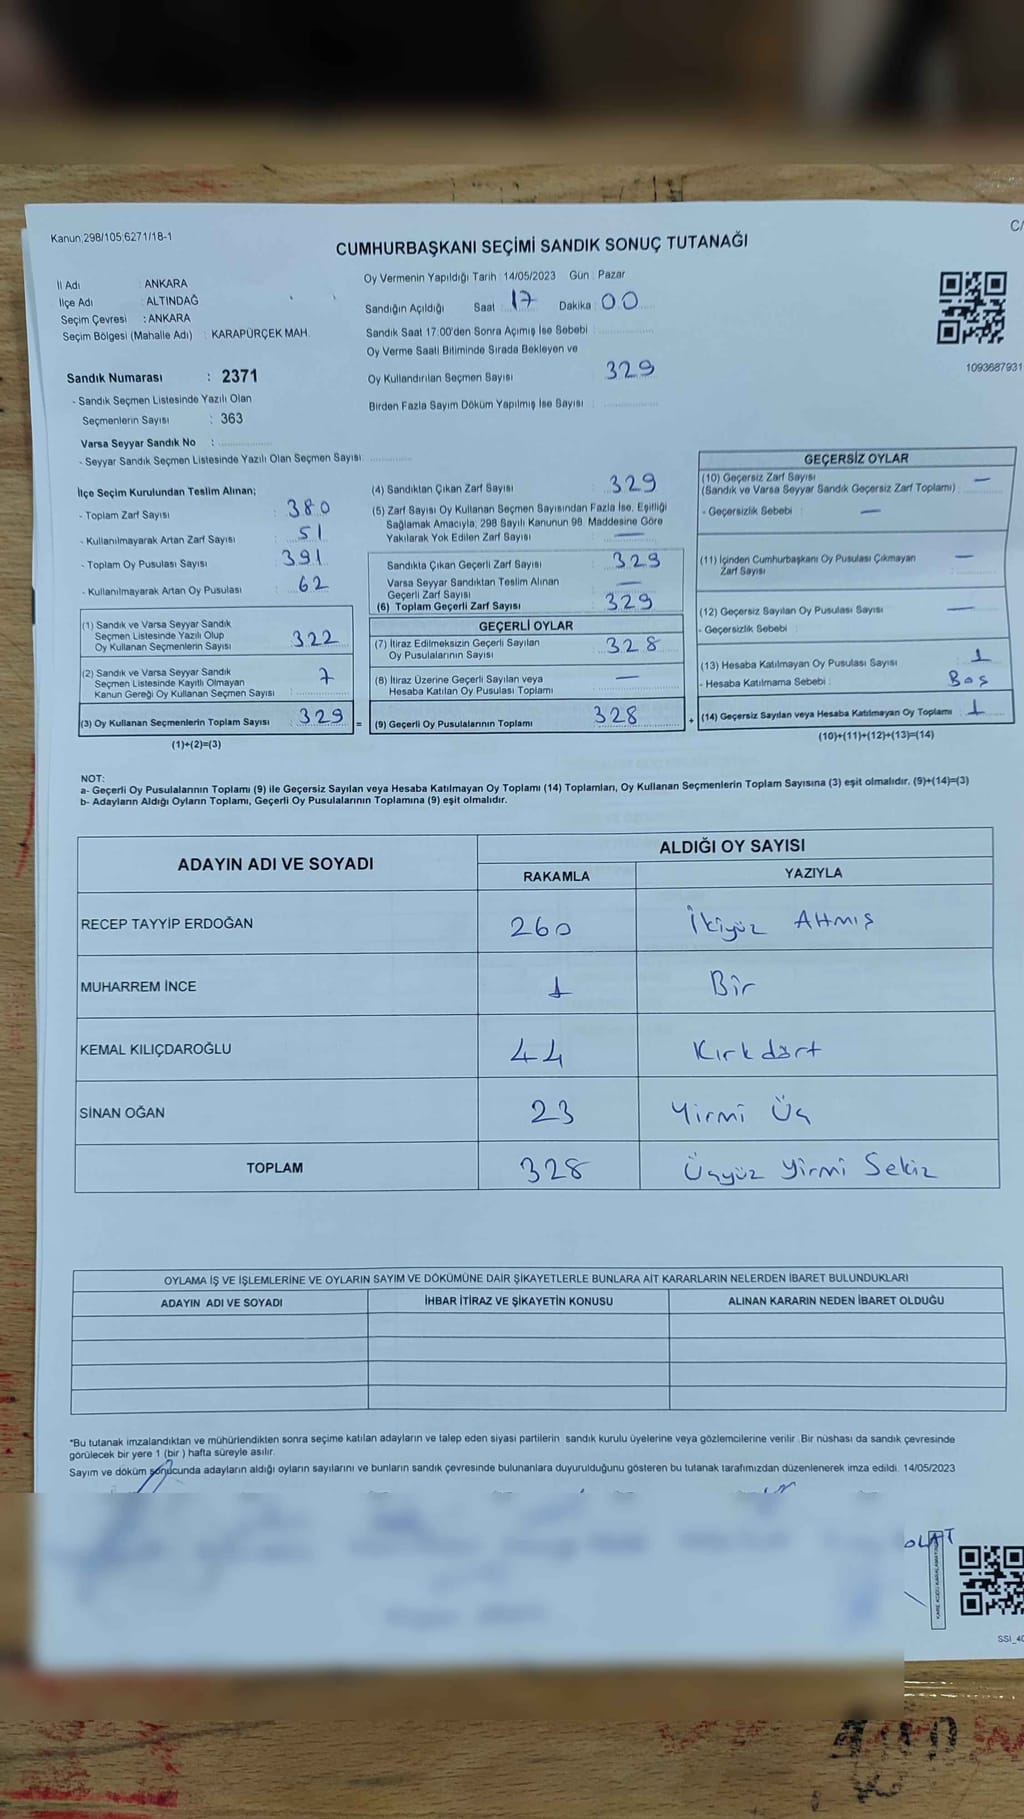 Kanun;298/105;6271/18-1
C/
CUMHURBAŞKANI SEÇİMİ SANDIK SONUÇ TUTANAĞI
İl Adı : ANKARA
İlçe Adı : ALTINDAĞ
Seçim Çevresi : ANKARA
Seçim Bölgesi (Mahalle Adı) : KARAPÜRÇEK MAH.
Oy Vermenin Yapıldığı Tarih : 14/05/2023 Gün : Pazar
Sandığın Açıldığı Saat : 17 Dakika : 00
Sandık Saat 17.00'den Sonra Açımış İse Sebebi :
Oy Verme Saati Bitiminde Sırada Bekleyen ve
Oy Kullandırılan Seçmen Sayısı 329
Birden Fazla Sayım Döküm Yapılmış İse Sayısı :
1093687931
Sandık Numarası : 2371
- Sandık Seçmen Listesinde Yazılı Olan
Seçmenlerin Sayısı : 363
Varsa Seyyar Sandık No :
- Seyyar Sandık Seçmen Listesinde Yazılı Olan Seçmen Sayısı:
İlçe Seçim Kurulundan Teslim Alınan;
- Toplam Zarf Sayısı : 380
- Kullanılmayarak Artan Zarf Sayısı : 51
- Toplam Oy Pusulası Sayısı : 391
- Kullanılmayarak Artan Oy Pusulası : 62
(1) Sandık ve Varsa Seyyar Sandık
Seçmen Listesinde Yazılı Olup
Oy Kullanan Seçmenlerin Sayısı : 322
(2) Sandık ve Varsa Seyyar Sandık
Seçmen Listesinde Kayıtlı Olmayan
Kanun Gereği Oy Kullanan Seçmen Sayısı : 7
(3) Oy Kullanan Seçmenlerin Toplam Sayısı : 329 =
(1)+(2)=(3)
(4) Sandıktan Çıkan Zarf Sayısı : 329
(5) Zarf Sayısı Oy Kullanan Seçmen Sayısından Fazla İse, Eşitliği
Sağlamak Amacıyla, 298 Sayılı Kanunun 98. Maddesine Göre
Yakılarak Yok Edilen Zarf Sayısı : —
Sandıkta Çıkan Geçerli Zarf Sayısı : 329
Varsa Seyyar Sandıktan Teslim Alınan
Geçerli Zarf Sayısı : —
(6) Toplam Geçerli Zarf Sayısı : 329
GEÇERLİ OYLAR
(7) İtiraz Edilmeksizin Geçerli Sayılan
Oy Pusulalarının Sayısı : 328
(8) İtiraz Üzerine Geçerli Sayılan veya
Hesaba Katılan Oy Pusulası Toplamı : —
(9) Geçerli Oy Pusulalarının Toplamı 328 +
GEÇERSİZ OYLAR
(10) Geçersiz Zarf Sayısı —
(Sandık ve Varsa Seyyar Sandık Geçersiz Zarf Toplamı) :
- Geçersizlik Sebebi : —
(11) İçinden Cumhurbaşkanı Oy Pusulası Çıkmayan —
Zarf Sayısı :
(12) Geçersiz Sayılan Oy Pusulası Sayısı : —
- Geçersizlik Sebebi :
(13) Hesaba Katılmayan Oy Pusulası Sayısı : 1
- Hesaba Katılmama Sebebi : Boş
(14) Geçersiz Sayılan veya Hesaba Katılmayan Oy Toplamı : 1
(10)+(11)+(12)+(13)=(14)
NOT:
a- Geçerli Oy Pusulalarının Toplamı (9) ile Geçersiz Sayılan veya Hesaba Katılmayan Oy Toplamı (14) Toplamları, Oy Kullanan Seçmenlerin Toplam Sayısına (3) eşit olmalıdır. (9)+(14)=(3)
b- Adayların Aldığı Oyların Toplamı, Geçerli Oy Pusulalarının Toplamına (9) eşit olmalıdır.
ADAYIN ADI VE SOYADI
ALDIĞI OY SAYISI
RAKAMLA YAZIYLA
RECEP TAYYİP ERDOĞAN 260 İkiyüz Altmış
MUHARREM İNCE 1 Bir
KEMAL KILIÇDAROĞLU 44 Kırkdört
SİNAN OĞAN 23 Yirmi Üç
TOPLAM 328 Üçyüz Yirmi Sekiz
OYLAMA İŞ VE İŞLEMLERİNE VE OYLARIN SAYIM VE DÖKÜMÜNE DAİR ŞİKAYETLERLE BUNLARA AİT KARARLARIN NELERDEN İBARET BULUNDUKLARI
ADAYIN ADI VE SOYADI İHBAR İTİRAZ VE ŞİKAYETİN KONUSU ALINAN KARARIN NEDEN İBARET OLDUĞU
*Bu tutanak imzalandıktan ve mühürlendikten sonra seçime katılan adayların ve talep eden siyasi partilerin sandık kurulu üyelerine veya gözlemcilerine verilir. Bir nüshası da sandık çevresinde
görülecek bir yere 1 (bir ) hafta süreyle asılır.
Sayım ve döküm sonucunda adayların aldığı oyların sayılarını ve bunların sandık çevresinde bulunanlara duyurulduğunu gösteren bu tutanak tarafımızdan düzenlenerek imza edildi. 14/05/2023
OLAT
SSI_40